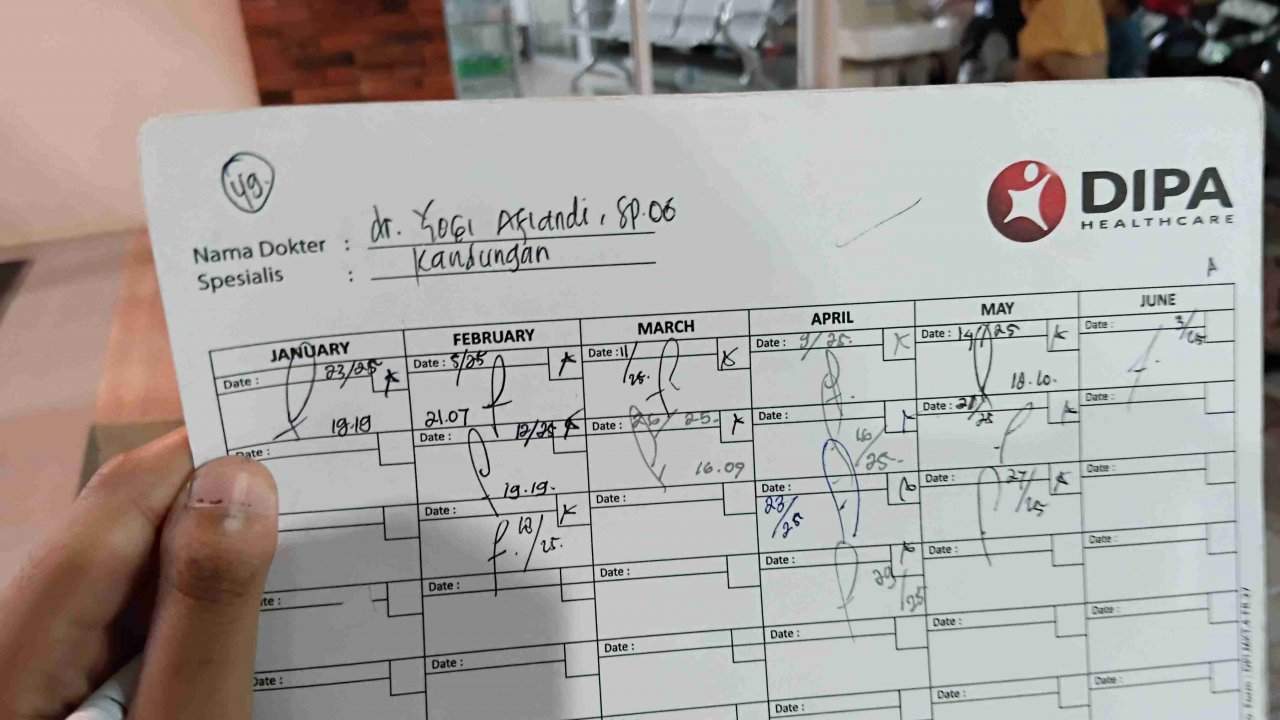 49.
DIPA
HEALTHCARE
Nama Dokter : dr. Yogi Aflandi, SP.OG
Spesialis : Kandungan
A
JANUARY FEBRUARY MARCH APRIL MAY JUNE
Date : 23/25 Date : 5/25 Date : 11/25. Date : 9/25. Date : 14/25 Date : 3/25
19.19 21.07 18.10.
Date : Date : 12/25 Date : 26/25. Date : 16/25. Date : 21/25 Date :
19.19. 16.09
Date : 18/25. Date : Date : 23/25 Date : 27/25 Date :
Date : Date : Date : 29/25 Date : Date :
Date : Date : Date : Date : Date :
Date : Date : Date :